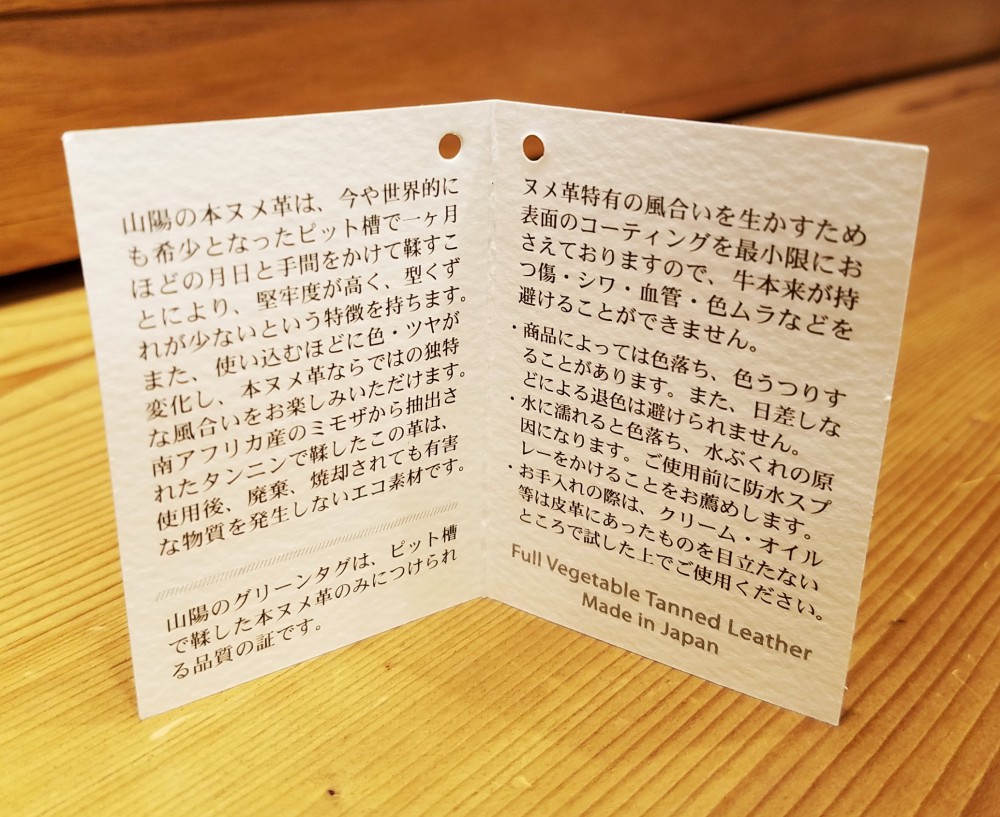 山陽の本ヌメ革は、今や世界的に
も希少となったピット槽で一ヶ月
ほどの月日と手間をかけて鞣すこ
とにより、堅牢度が高く、型くず
れが少ないという特徴を持ちます。
また、使い込むほどに色・ツヤが
変化し、本ヌメ革ならではの独特
な風合いをお楽しみいただけます。
南アフリカ産のミモザから抽出さ
れたタンニンで鞣したこの革は、
使用後、廃棄、焼却されても有害
な物質を発生しないエコ素材です。
山陽のグリーンタグは、ピット槽
で鞣した本ヌメ革のみにつけられ
る品質の証です。
ヌメ革特有の風合いを生かすため
表面のコーティングを最小限にお
さえておりますので、牛本来が持
つ傷・シワ・血管・色ムラなどを
避けることができません。
・商品によっては色落ち、色うつりす
ることがあります。また、日差しな
どによる退色は避けられません。
・水に濡れると色落ち、水ぶくれの原
因になります。ご使用前に防水スプ
レーをかけることをお薦めします。
・お手入れの際は、クリーム・オイル
等は皮革にあったものを目立たない
ところで試した上でご使用ください。
Full Vegetable Tanned Leather
Made in Japan